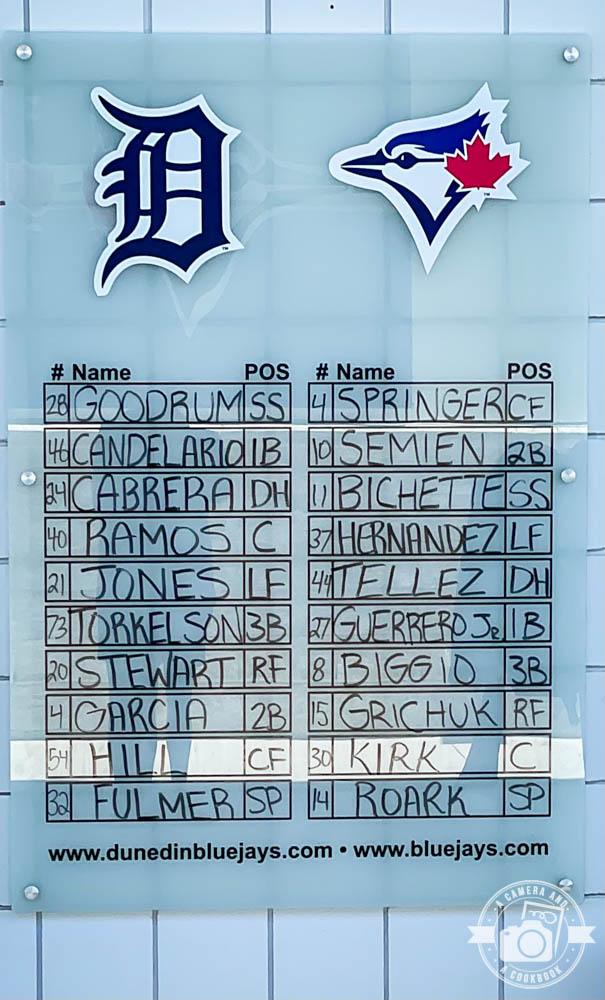 D
# Name POS
28 GOODRUM SS
46 CANDELARIO 1B
24 CABRERA DH
40 RAMOS C
21 JONES LF
73 TORKELSON 3B
20 STEWART RF
4 GARCIA 2B
54 HILL CF
32 FULMER SP
# Name POS
4 SPRINGER CF
10 SEMIEN 2B
11 BICHETTE SS
37 HERNANDEZ LF
44 TELLEZ DH
27 GUERRERO JR 1B
8 BIGGIO 3B
15 GRICHUK RF
30 KIRK C
14 ROARK SP
www.dunedinbluejays.com • www.bluejays.com
A CAMERA AND
A COOKBOOK